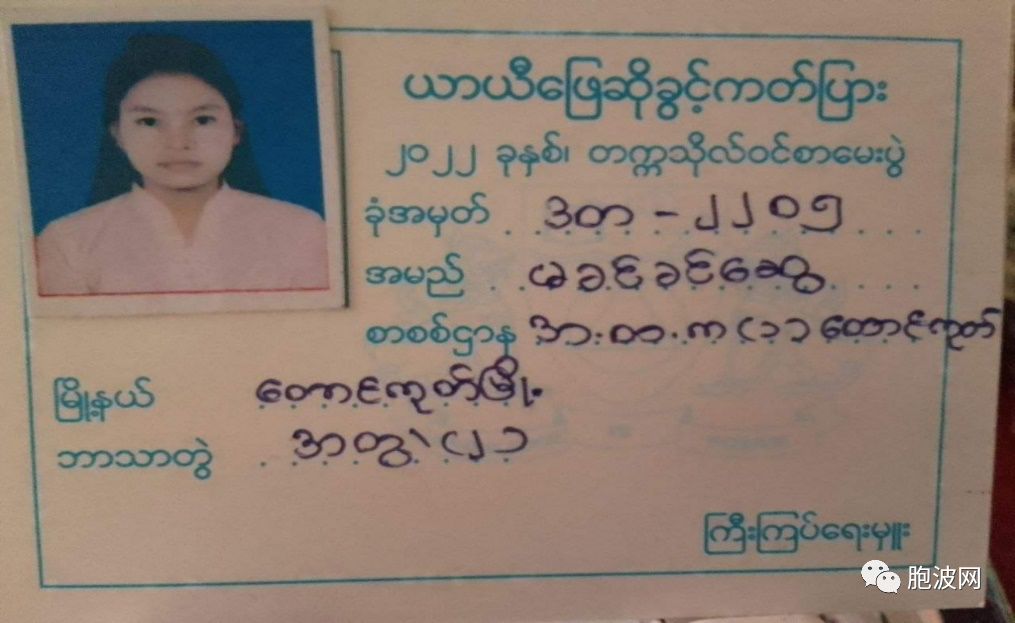 ယာယီဖြေဆိုခွင့်ကတ်ပြား
၂၀၂၂ ခုနှစ်၊ တက္ကသိုလ်ဝင်စာမေးပွဲ
ခုံအမှတ် ဒတ - ၂၂၀၅
အမည် မခင်ခင်ဆွေ
စာစစ်ဌာန အ.ထ.က (၁) တောင်ကုတ်
မြို့နယ် တောင်ကုတ်မြို့.
ဘာသာတွဲ အတွဲ (၂)
ကြီးကြပ်ရေးမှူး
胞波网